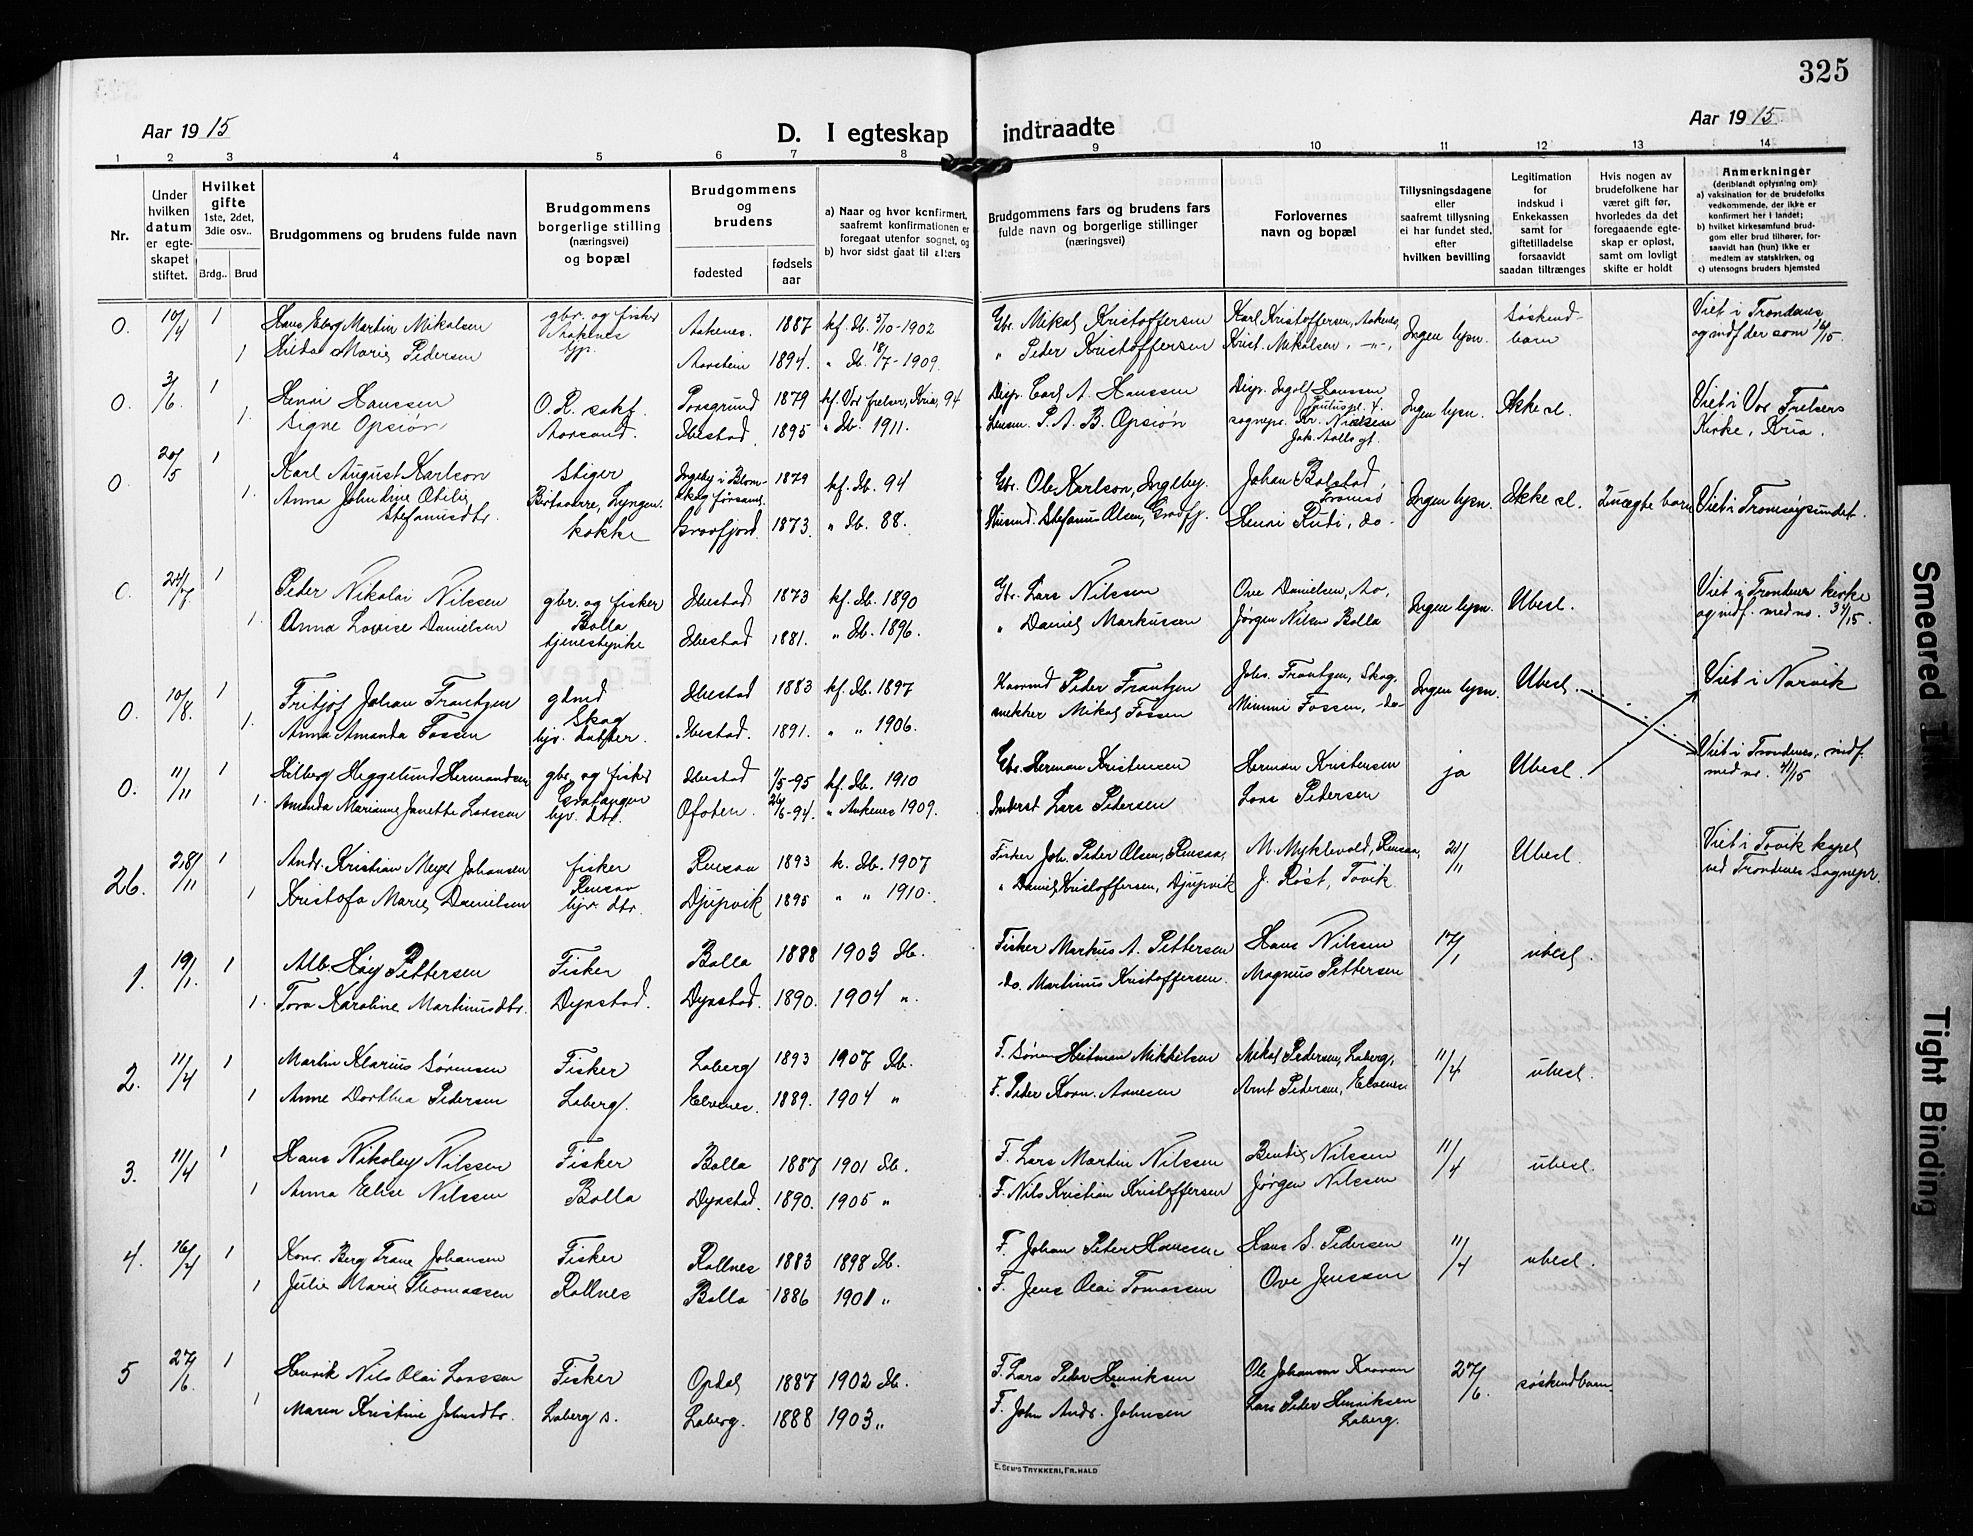 325
Aar 1915
D. I egteskap indtraadte
Aar 1915
1 2 3 4 5 6 7 8 9 10 11 12 13 14
Nr.
Under hvilken datum er egteskapet stiftet.
Hvilket gifte 1ste, 2det, 3die osv..
Brdg.. Brud
Brudgommens og brudens fulde navn
Brudgommens borgerlige stilling (næringsvei) og bopæl
Brudgommens og brudens
fødested
fødsels aar
a) Naar og hvor konfirmert, saafremt konfirmationen er foregaat utenfor sognet, og
b) hvor sidst gaat til alters
Brudgommens fars og brudens fars fulde navn og borgerlige stillinger (næringsvei)
Forlovernes navn og bopæl
Tillysningsdagene eller saafremt tillysning ei har fundet sted, efter hvilken bevilling
Legitimation for indskud i Enkekassen samt for giftetilladelse forsaavidt saadan tiltrænges
Hvis nogen av brudefolkene har været gift før, hvorledes da det foregaaende egteskap er opløst, samt om lovligt skifte er holdt
Anmerkninger (deriblandt oplysning om):
a) vaksination for de brudefolks vedkommende, der ikke er konfirmert her i landet;
b) hvilket kirkesamfund brudgom eller brud tilhører, forsaavidt han (hun) ikke er medlem av statskirken, og
c) utensogns bruders hjemsted
0. 10/4 1 Hans Martin Mikalsen gbr. og fisker Aakenes 1887 kf. Ib. 5/10-1902 Gbr. Mikal Kristoffersen Karl Kristoffersen, Aakenes, Ingen lysn. Søskendbarn Viet i Trondenes
1 Hilda Marie Pedersen Aarstein 1894. " Ib. 18/7-1909. " Peder Kristoffersen Krist. Mikalsen, -"-, og indf. der som 16/15.
0. 3/6 1 Henri Hanssen O.R. sakf. Porsgrund 1879 kf. Vor frelser, Kria, 94 Disp. Carl A. Hanssen Disp. Ingolf Hanssen Ingen lysn. Ikke sl. Viet i Vor Frelsers
1. Signe Opsiøn Aarsand. Ibestad 1895 " Ib. 1911. Lensm. P. A. B. Opsiøn sognepr. Kr. Nielsen Kirke, Kria.
0. 20/5 1 Karl August Karlson Stiger 1879 kf. Ib. 94 Gbr. Ole Karlson, Ingleby. Johan Bolstad, Tromsø Ingen lysn. Ikke sl. 2 uægte barn Viet i Tromsøysundet.
1. Anna Johndine Otilie Stefanusdtr. Lyngen. kokke Gravfjord. 1873. " Ib. 88. Stefanus Olsen, Gravfj. Henri Rudi, do-
0. 24/7. 1 Peder Nikolai Nilssen gbr. og fisker Ibestad 1873 kf. Ib. 1890 Gbr. Lars Nilssen Ove Danielsen, Aa, Ingen lysn. Ubesl. Viet i Trondenes kirke
1. Anna Lovise Danielsen Bolla tjenestepike Ibestad 1881. " Ib. 1896. " Daniel Markussen Jørgen Nilsen Bolla og indf. med no. 34/15.
0. 10/8. 1 Fritjof Johan Frantzen gbmd Ibestad 1883 kf. Ib. 1897 Peder Frantzen Johs. Frantzen, Skog, Ingen lysn. Ubesl. Viet i Narvik
1. Anna Amanda Fossen Skog hjv. datter. Ibestad. 1891. " " 1906. snekker Mikal Fossen Mimmi Fossen, -do-
0. 11/11 1 Hilberg Heggelund Hermandsen gbr. og fisker Ibestad 1/5-95 kf. Ib. 1910 Gbr. Herman Kristensen Herman Kristensen ja Ubesl. Viet i Trondenes, indf.
1. Amanda Marianne Janette Larssen Gratangen hjv. dtr. Ofoten. 26/6-94. " Ankenes 1909. Lars Pedersen Lars Pedersen med nr. 41/15
26. 28/11 1 Andr. Kristian Meyer Johansen fisker Rensaa 1893 k. Ib. 1907 Fisker Joh. Peder Olsen, Rensaa, M. Myklevold, Rensaa, 21/11 Ubesl. Viet i Tovik kapel
1 Kristofa Marie Danielsen Rensaa hjv. dtr. Djupvik 1895 " " 1910. " Daniel Kristoffersen, Djupvik J. Røst, Tovik. ved Trondenes Sognepr.
1. 19/1. 1 Alb. Høy Pettersen Fisker Bolla 1888 1903 Ib. Fisker Markus A. Pettersen Hans Nilssen 17/1 ubesl.
1. Tora Karoline Martinusdtr. Dyrstad. Dyrstad. 1890. 1904 ". do. Martinus Kristoffersen. Magnus Pettersen
2. 11/4 1 Martin Klarius Sørensen Fisker Laberg 1893 1907 Ib. F. Søren Heitman Mikkelsen Mikal Pedersen, Laberg, 11/4 ubesl.
1 Anne Dorthea Pedersen Laberg. Elvenes. 1889. 1904 " F. Peder Korn. Arnesen Arnt Pedersen, Elvenes
3. 11/4 1 Hans Nikolay Nilssen Fisker Bolla 1887 1901 Ib. F. Lars Martin Nilssen Bendik Nilssen 11/4 ubesl.
1 Anna Elise Nilssen Bolla Dyrstad. 1890. 1905 " F. Nils Kristian Kristoffersen Jørgen Nilssen
4. 16/4 1 Konr. Berg Trane Johansen Fisker Rollnes 1883 1898 Ib. F. Johan Peter Hanssen Hans S. Pedersen 11/4 ubesl.
1 Julie Marie Thomassen Rollnes Bolla 1886 1901 " F. Jens Olai Tomassen Ove Jenssen
5 27/6. 1 Henrik Nils Olai Larssen Fisker Opdal 1887 1902 Ib. F. Lars Peder Henriksen Ole Johansen Kraavan 27/6. søskendbarn.
1 Maren Kristine Johnsdtr. Laberg s. Laberg. 1888 1903 " F. John Andr. Johnsen Lars Peder Henriksen Laberg.
E. SEM'S TRYKKERI, FR.HALD
Smeared Ink
Tight Binding